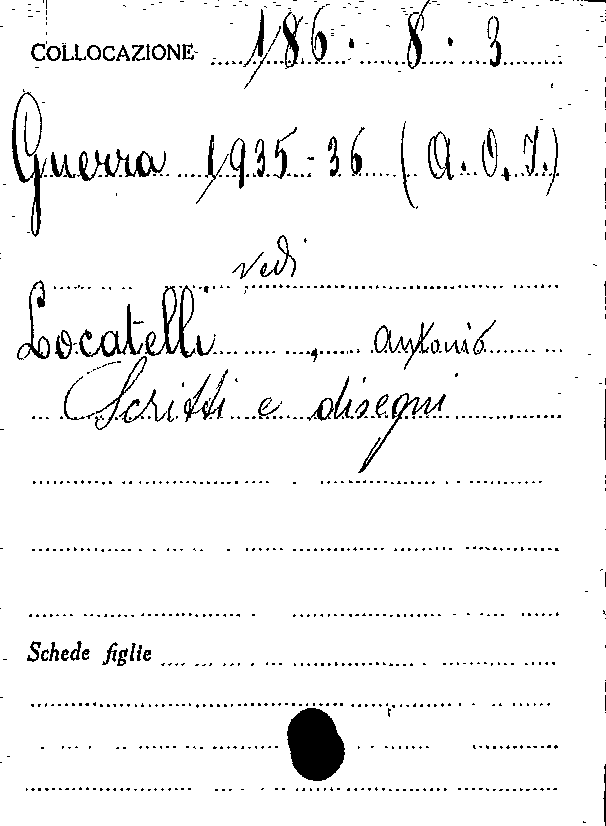 COLLOCAZIONE 186. 8. 3
Guerra 1935-36 (A. O. I.)
vedi
Locatelli, Antonio
Scritti e disegni
Schede figlie